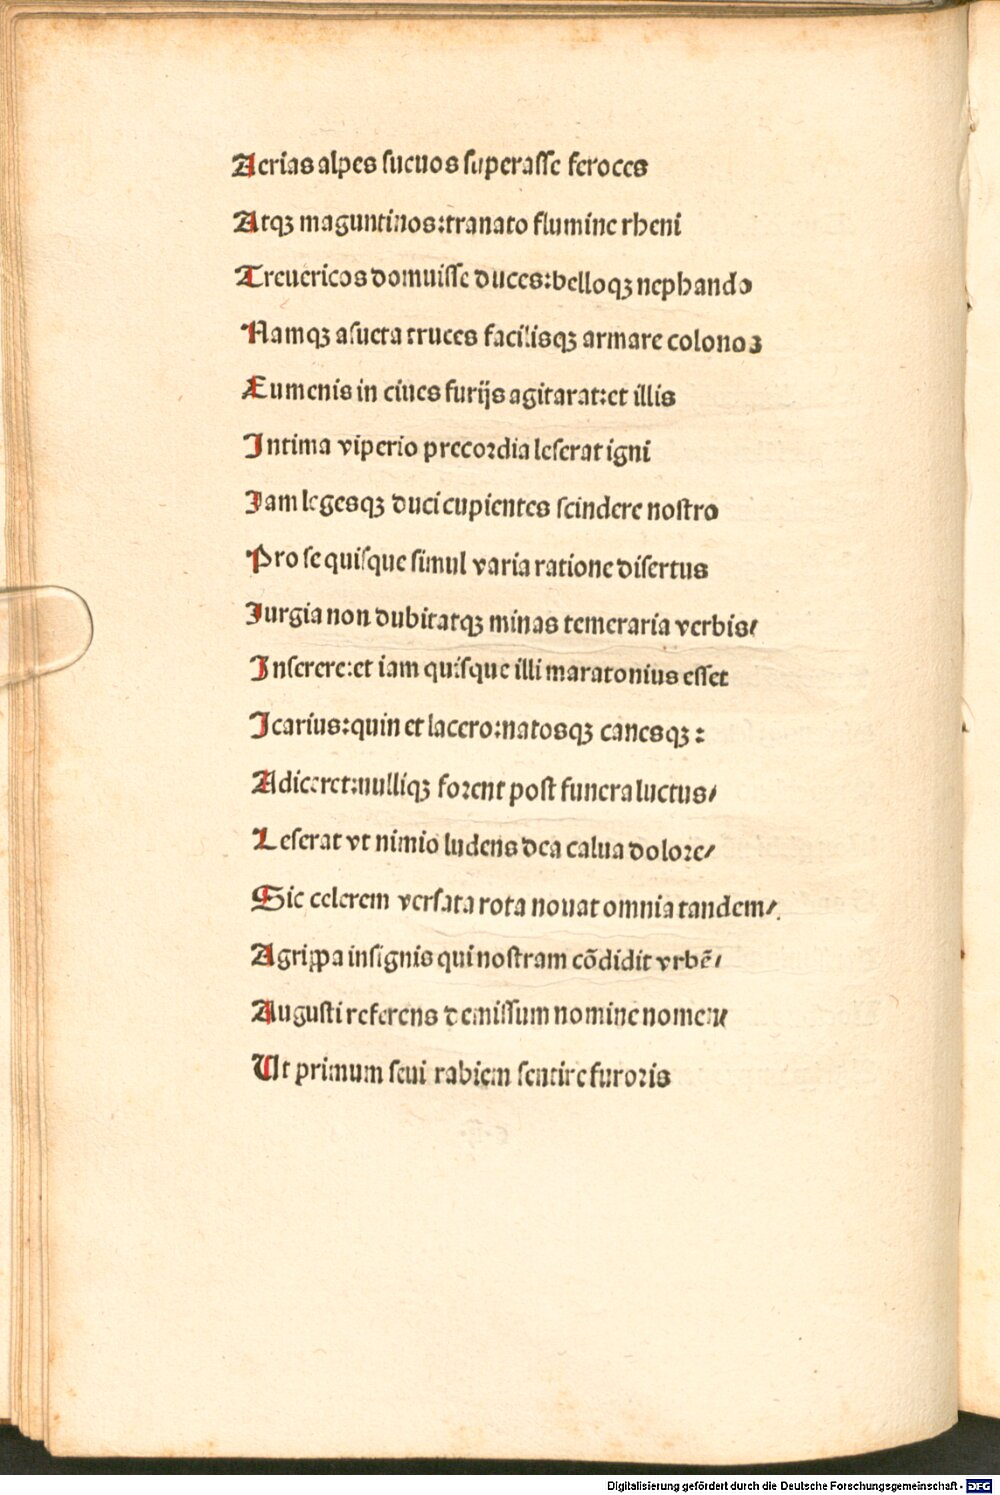 Aerias alpes sueuos superasse feroces
Atqꝫ maguntinos:tranato flumine rheni
Treuericos domuisse duces:belloqꝫ nephando
Namqꝫ asueta truces facilisqꝫ armare colonos
Eumenis in ciues furijs agitarat:et illis
Intima viperio precordia leserat igni
Iam legesqꝫ duci cupientes scindere nostro
Pro se quisque simul varia ratione disertus
Iurgia non dubitatqꝫ minas temeraria verbis/
Inserere:et iam quisque illi maratonius esset
Icarius:quin et lacero:natosqꝫ canesqꝫ:
Adiceret:nulliqꝫ forent post funera luctus/
Leserat vt nimio ludens dea calua dolore/
Sic celerem versata rota nouat omnia tandem/.
Agrippa insignis qui nostram cõdidit vrbẽ/
Augusti referens demissum nomine nomen/
Ut primum seui rabiem sentire furoris
Digitalisierung gefördert durch die Deutsche Forschungsgemeinschaft - DFG